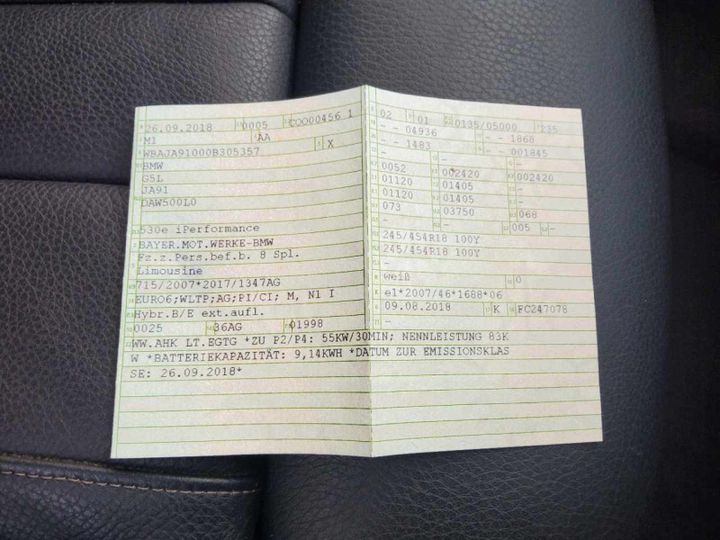 *26.09.2018 0005 COO00456 1
M1 AA
WBAJA91000B305357 X
BMW
G5L
JA91
DAW500L0
530e iPerformance
BAYER.MOT.WERKE-BMW
Fz.z.Pers.bef.b. 8 Spl.
Limousine
715/2007*2017/1347AG
EURO6;WLTP;AG;PI/CI; M, N1 I
Hybr.B/E ext.aufl.
0025 36AG 01998
WW.AHK LT.EGTG *ZU P2/P4: 55KW/30MIN; NENNLEISTUNG 83K
W *BATTERIEKAPAZITÄT: 9,14KWH *DATUM ZUR EMISSIONSKLAS
SE: 26.09.2018*
02 01 0135/05000 235
- - 04936 - - 1868
- - 1483 - - 001845
- - -
0052 002420 002420
01120 01405 -
01120 01405 -
073 03750 068
- - 005 -
245/45R18 100Y
245/45R18 100Y
-
weiß 0
e1*2007/46*1688*06
09.08.2018 K FC247078
- -